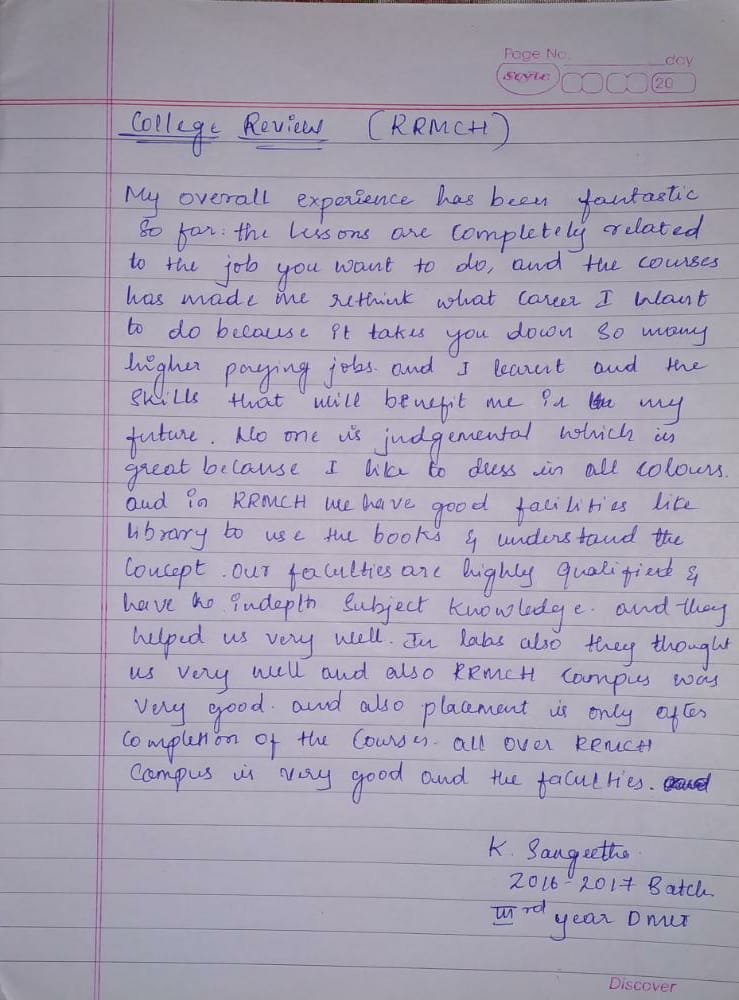 Page No. day
Style 20
College Review (RRMCH)
My overall experience has been fantastic
so far: the lessons are completely related
to the job you want to do, and the courses
has made me rethink what career I want
to do because it takes you down so many
higher paying jobs. and I learnt and the
skills that will benefit me in my
future. No one is judgemental which is
great because I like to dress in all colours.
and in RRMCH we have good facilities like
library to use the books & understand the
concept. Our faculties are highly qualified &
have indepth subject knowledge. and they
helped us very well. In labs also they thought
us very well and also RRMCH campus was
very good. and also placement is only after
completion of the courses. all over RRMCH
campus is very good and the faculties.
K. Sangeetha
2016-2017 Batch
IIIrd year DMLT
Discover